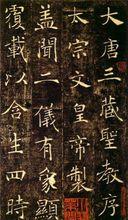 大唐三藏聖教序
太宗文皇帝製
蓋聞二儀有象顯
覆載以含生四時